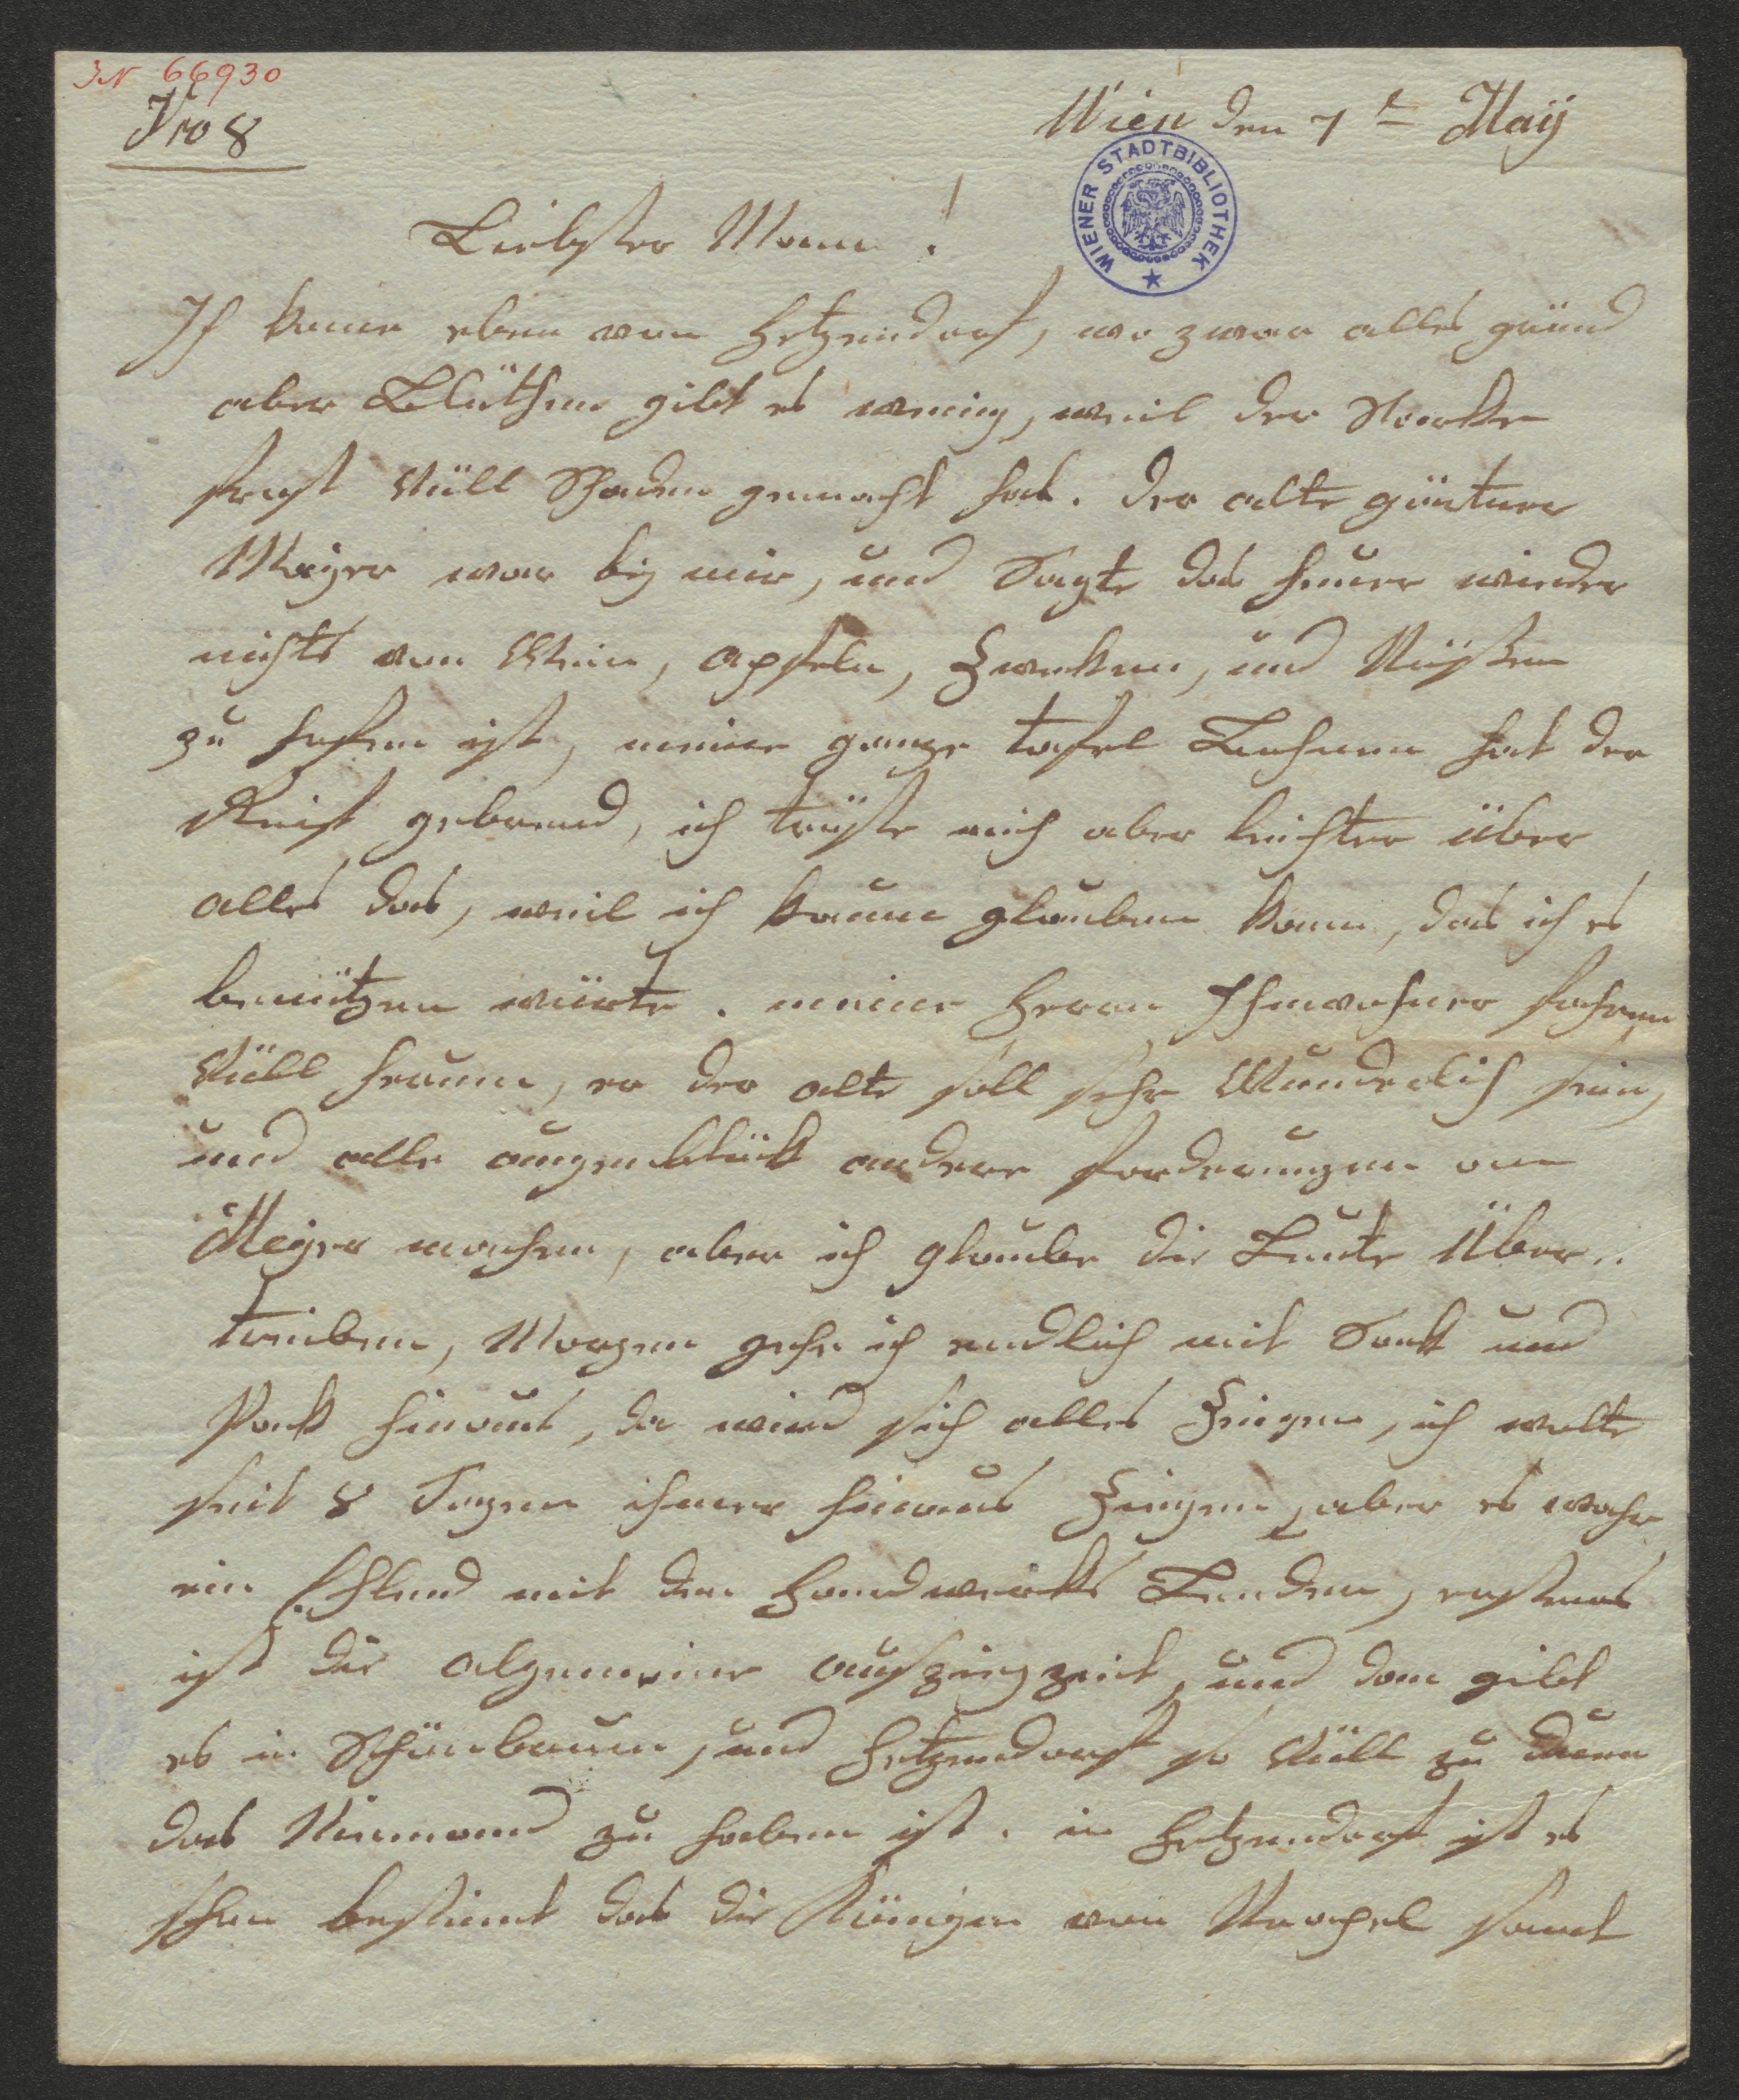 JN 66930
Nro 8
Wien den 7t May
WIENER STADTBIBLIOTHEK
Liebster Mann!
Ich kome eben von Hetzendorf, wo zwar alles gründ
aber Blüthen gibt es wenig, weil der Starke
frost Vüll Schaden gemacht hat. der alte gärtner
Mayer war bey mir, und Sagte das heuer wieder
nichts von Wein, apfeln, Zweken, und Nüßen
zu hofen ist, meine ganze tafel Birnen hat der
Reif gebrend, ich tröste mich aber leichter über
alles das, weil ich kaum glauben kann, das ich es
benützen würte. meine Herrn Ihnwohner fahren
Vüll herum, er der alte soll sehr Wunderlich sein,
und alle augenblück andere forderungen am
Meyer machen, aber ich glaube die Leute Über
treiben, Morgen gehe ich endlich mit Sack und
Pack hinaus, da wird sich alles Zeigen, ich wolte
seit 8 Tagen ihmer hinaus Ziegen, aber es wahr
ein Ehlend mit den Handwerks Leuden, erstens
ist die algemeine ausziegzeit, und dan gibt
es in Schönbrunn, und Hetzendorf so Vüll zu duen
das Niemand zu haben ist. in Hetzendorf ist es
schon bestimt das die Königen von Neapel samt